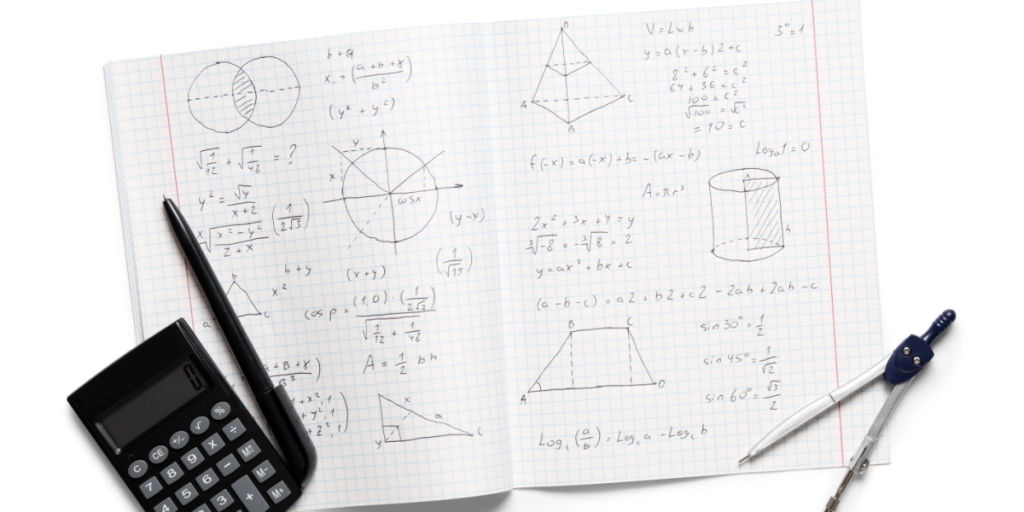 b + a
x, = (a + b + x / b²)
(y² + y²)
√1/12 + √1/46 = ?
y
x
cos x
(y-x)
y² = √y / x+2
x√x² - y² / 2 + x (1 / 2√3)
b
c
a
x²
b + y
(x+y)
(1 / √15)
cos p = (1,0) · (1 / 2√3) / √1/12 + 1/46
A = 1/2 bh
x
a
y
c
D
A
B
C
V = L w b
3° = 1
y = a(x - b)2 + c
8² + 6² = c²
64 + 36 = c²
100 = c²
√100 = √c²
= 10 = c
f(-x) = a(-x) + b = -(ax - b)
Logₐ1 = 0
A = πr³
h
2x² + 3x + 4 = y
³√-8 = -³√8 = 2
y = ax³ + bx + c
(a - b - c) = a2 + b2 + c2 - 2ab + 2ab - c
B
C
A
D
sin 30° = 1/2
sin 45° = 1/√2
sin 60° = √3/2
Log꜀(a/b) = Log꜀ a - Log꜀ b
0
C CE +/- √ %
7 8 9 X ÷
4 5 6 - M
3 + M-
M+